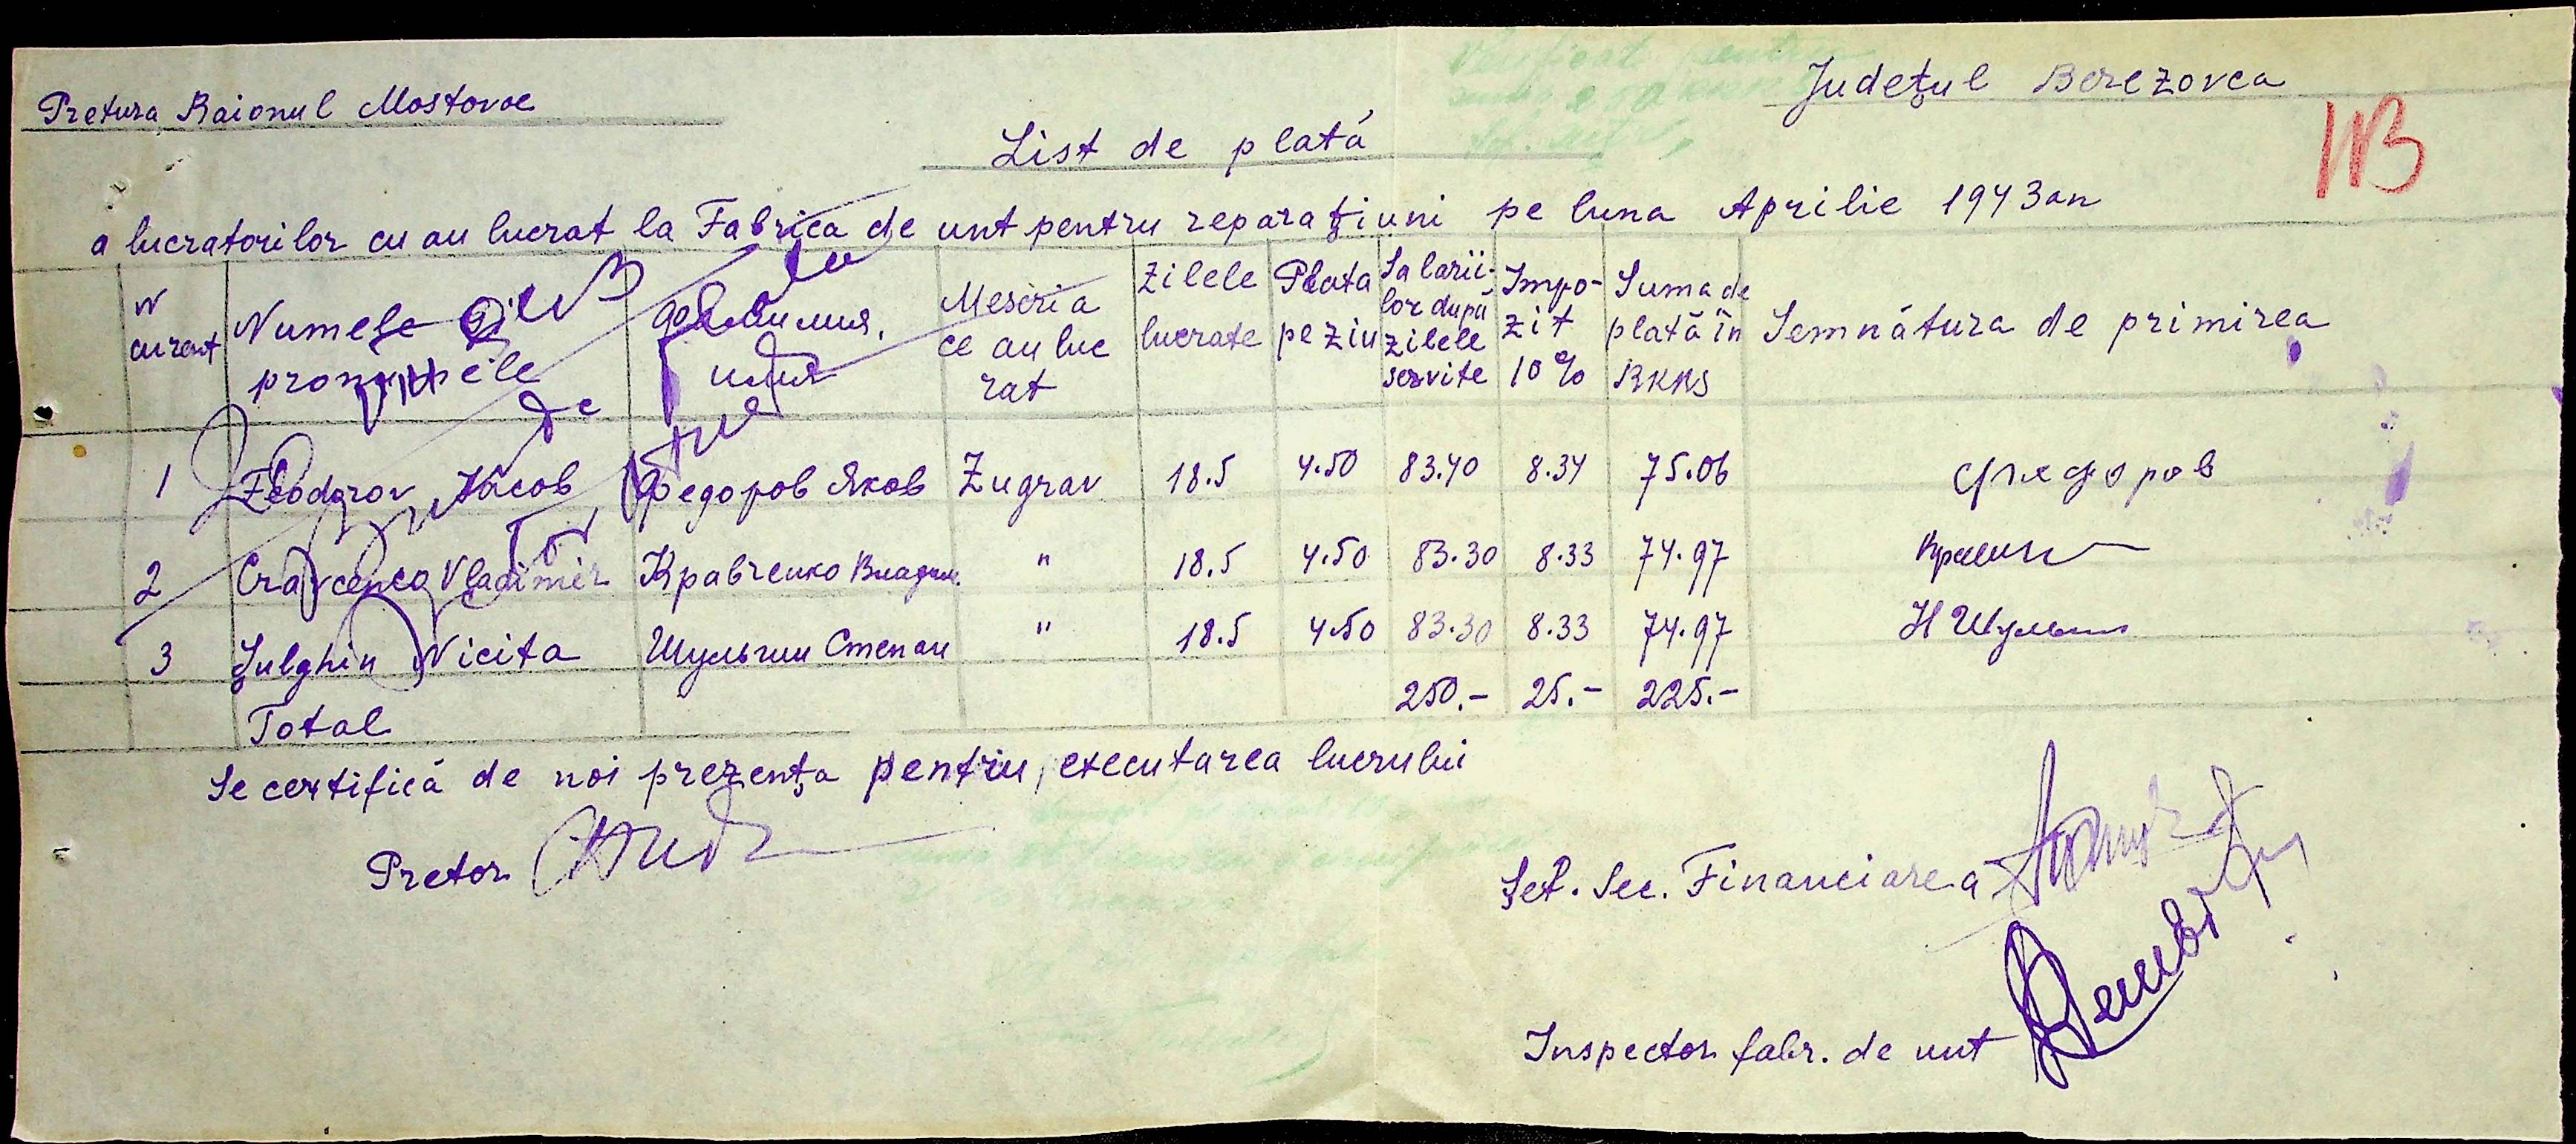 Pretura Raionul Mostovoe
Județul Berezovca
113
List de plată
a lucratorilor cu au lucrat la Fabrica de unt pentru reparațiuni pe luna Aprilie 1943 an
N curent | Numele și pronumele | Фамилия, имя | Meseria ce au luc rat | Zilele lucrate | Plata pe ziu | Salarii-lor după zilele servite | Impo-zit 10% | Suma de plată în RKKS | Semnătura de primirea
1 Feodorov Iacob Федоров Яков Zugrav 18.5 4.50 83.40 8.34 75.06 Федоров
2 Cravcenco Vladimir Кравченко Владим. " 18.5 4.50 83.30 8.33 74.97
3 Șulghin Nicita Шульгин Степан " 18.5 4.50 83.30 8.33 74.97 Н Шульгин
Total 250.- 25.- 225.-
Se certifică de noi prezența pentru executarea lucrului
Pretor
Șef. Sec. Financiare a
Inspector fabr. de unt